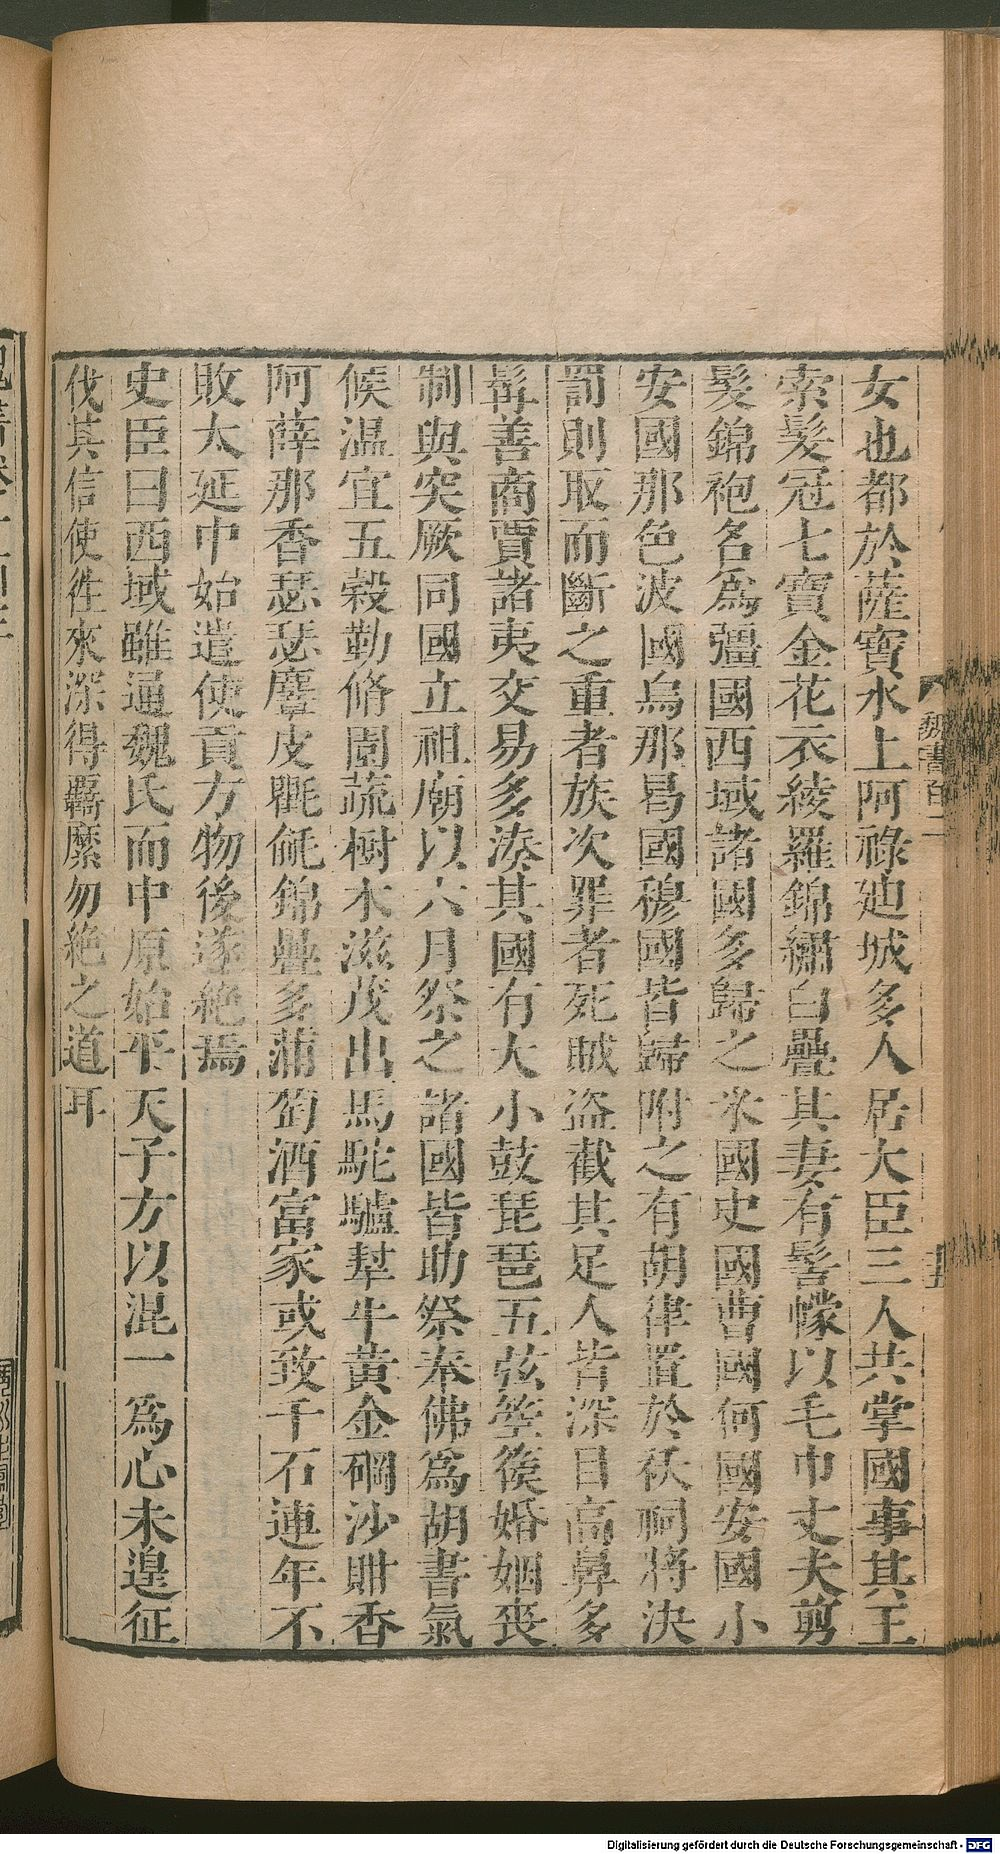 女也都於薩寶水上阿祿迪城多人居大臣三人共掌國事其王
索髮冠七寶金花衣綾羅錦繡白疊其妻有髻幪以毛巾丈夫剪
髮錦袍名爲彊國西域諸國多歸之米國史國曹國何國安國小
安國那色波國烏那曷國穆國皆歸附之有胡律置於祆祠將決
罰則取而斷之重者族次罪者死賊盜截其足人皆深目高鼻多
髯善商賈諸夷交易多湊其國有大小鼓琵琶五弦箜篌婚姻喪
制與突厥同國立祖廟以六月祭之諸國皆助祭奉佛爲胡書氣
候温宜五穀勤脩園蔬樹木滋茂出馬駝驢犎牛黃金硇沙𧵊香
阿薛那香瑟瑟麞皮氍㲣錦疊多蒲萄酒富家或致千石連年不
敗太延中始遣使貢方物後遂絶焉
史臣曰西域雖通魏氏而中原始平天子方以混一爲心未遑征
伐其信使徃來深得羈縻勿絶之道耳
魏書百二
Digitalisierung gefördert durch die Deutsche Forschungsgemeinschaft - DFG